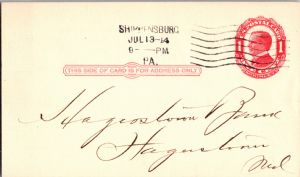 SHIPPENSBURG
JUL 13-14
PA.
U.S. POSTAL CARD
1
THIS SIDE OF CARD IS FOR ADDRESS ONLY
Hagerstown Bank
Hagerstown
Md